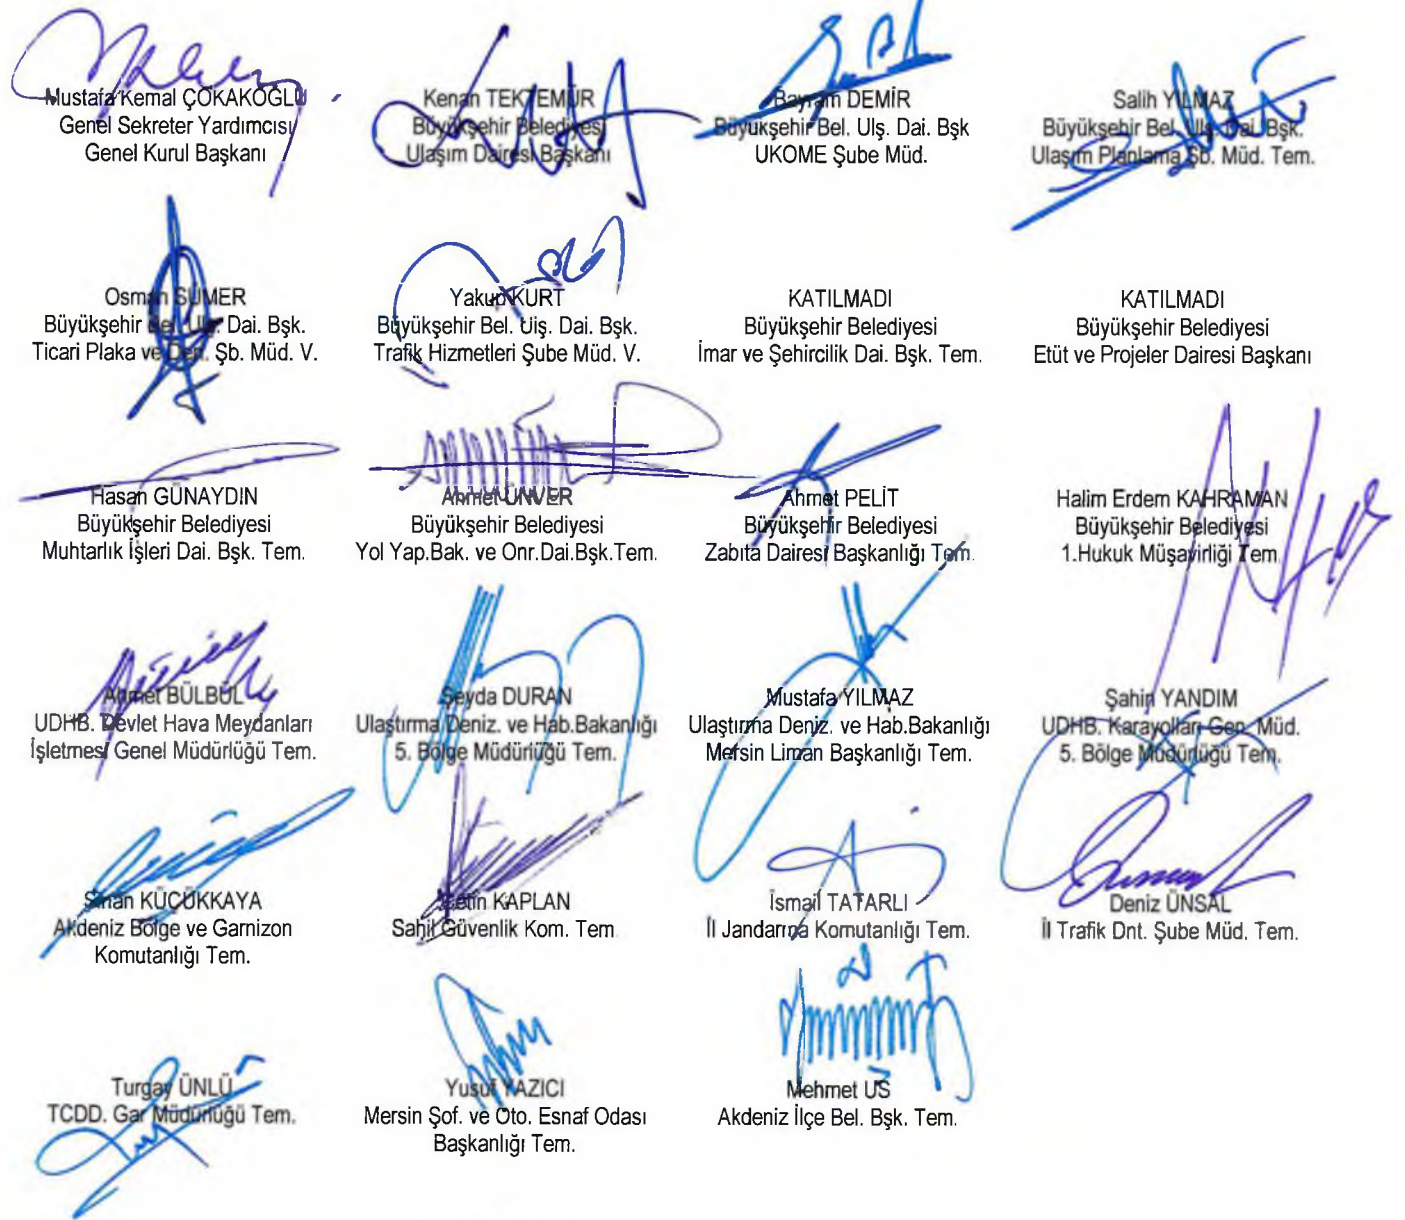 Mustafa Kemal ÇOKAKOĞLU
Genel Sekreter Yardımcısı
Genel Kurul Başkanı
Kenan TEKTEMUR
Büyükşehir Belediyesi
Ulaşım Dairesi Başkanı
Bayram DEMİR
Büyükşehir Bel. Ulş. Dai. Bşk
UKOME Şube Müd.
Salih YILMAZ
Büyükşehir Bel. Ulş. Dai. Bşk.
Ulaşım Planlama Şb. Müd. Tem.
Osman SÜMER
Büyükşehir Bel. Ulş. Dai. Bşk.
Ticari Plaka ve Den. Şb. Müd. V.
Yakup KURT
Büyükşehir Bel. Ulş. Dai. Bşk.
Trafik Hizmetleri Şube Müd. V.
KATILMADI
Büyükşehir Belediyesi
İmar ve Şehircilik Dai. Bşk. Tem.
KATILMADI
Büyükşehir Belediyesi
Etüt ve Projeler Dairesi Başkanı
Hasan GÜNAYDIN
Büyükşehir Belediyesi
Muhtarlık İşleri Dai. Bşk. Tem.
Ahmet ÜNVER
Büyükşehir Belediyesi
Yol Yap.Bak. ve Onr.Dai.Bşk.Tem.
Ahmet PELİT
Büyükşehir Belediyesi
Zabıta Dairesi Başkanlığı Tem.
Halim Erdem KAHRAMAN
Büyükşehir Belediyesi
1.Hukuk Müşavirliği Tem
Ahmet BÜLBÜL
UDHB. Devlet Hava Meydanları
İşletmesi Genel Müdürlüğü Tem.
Şeyda DURAN
Ulaştırma Deniz. ve Hab.Bakanlığı
5. Bölge Müdürlüğü Tem.
Mustafa YILMAZ
Ulaştırma Deniz. ve Hab.Bakanlığı
Mersin Liman Başkanlığı Tem.
Şahin YANDIM
UDHB. Karayolları Gen. Müd.
5. Bölge Müdürlüğü Tem.
Sinan KÜÇÜKKAYA
Akdeniz Bölge ve Garnizon
Komutanlığı Tem.
Çetin KAPLAN
Sahil Güvenlik Kom. Tem
İsmail TATARLI
İl Jandarma Komutanlığı Tem.
Deniz ÜNSAL
İl Trafik Dnt. Şube Müd. Tem.
Turgay ÜNLÜ
TCDD. Gar Müdürlüğü Tem.
Yusuf YAZICI
Mersin Şof. ve Oto. Esnaf Odası
Başkanlığı Tem.
Mehmet US
Akdeniz İlçe Bel. Bşk. Tem.